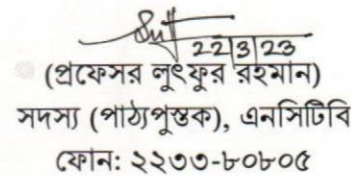 22/3/23
(প্রফেসর লুৎফুর রহমান)
সদস্য (পাঠ্যপুস্তক), এনসিটিবি
ফোন: ২২৩৩-৮০৮০৫